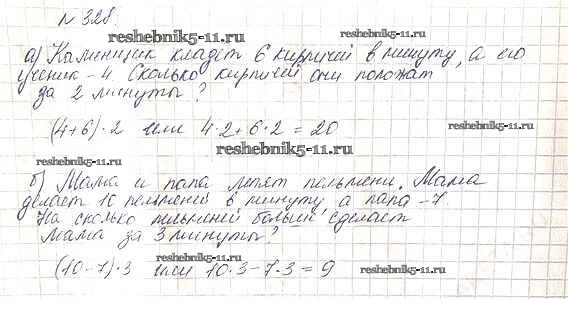 № 328.
reshebnik5-11.ru
reshebnik5-11.ru
а) Каменщик кладет 6 кирпичей в минуту, а его
ученик – 4. Сколько кирпичей они положат
за 2 минуты?
(4+6)·2 или 4·2+6·2=20
reshebnik5-11.ru
reshebnik5-11.ru
reshebnik5-11.ru
б) Мама и папа лепят пельмени. Мама
делает 10 пельменей в минуту, а папа – 7.
На сколько пельменей больше сделает
мама за 3 минуты?
(10-7)·3 или 10·3-7·3=9
reshebnik5-11.ru
reshebnik5-11.ru